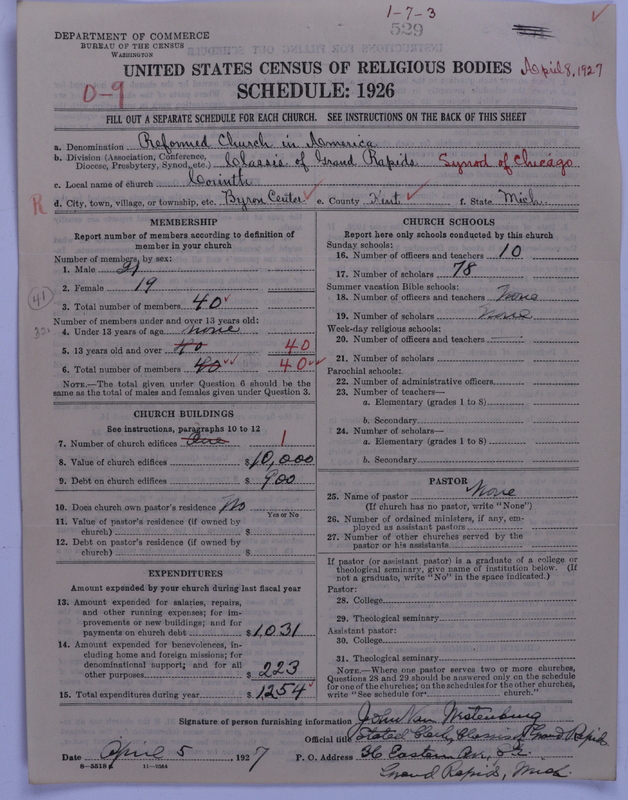 1-7-3
529
DEPARTMENT OF COMMERCE
BUREAU OF THE CENSUS
WASHINGTON
UNITED STATES CENSUS OF RELIGIOUS BODIES April 8, 1927
0-9 SCHEDULE: 1926
FILL OUT A SEPARATE SCHEDULE FOR EACH CHURCH. SEE INSTRUCTIONS ON THE BACK OF THIS SHEET
a. Denomination Reformed Church in America
b. Division (Association, Conference, Diocese, Presbytery, Synod, etc.) Classis of Grand Rapids Synod of Chicago
c. Local name of church Corinth
R d. City, town, village, or township, etc. Byron Center e. County Kent f. State Mich.
MEMBERSHIP
Report number of members according to definition of
member in your church
Number of members, by sex:
1. Male 21
2. Female 19
41
3. Total number of members 40
Number of members under and over 13 years old:
4. Under 13 years of age none
5. 13 years old and over 40 40
6. Total number of members 40 40
NOTE.—The total given under Question 6 should be the
same as the total of males and females given under Question 3.
CHURCH BUILDINGS
See instructions, paragraphs 10 to 12
7. Number of church edifices One 1
8. Value of church edifices $10,000
9. Debt on church edifices $ 900
10. Does church own pastor's residence No
Yes or No
11. Value of pastor's residence (if owned by
church) $
12. Debt on pastor's residence (if owned by
church) $
EXPENDITURES
Amount expended by your church during last fiscal year
13. Amount expended for salaries, repairs,
and other running expenses; for im-
provements or new buildings; and for
payments on church debt $1031
14. Amount expended for benevolences, in-
cluding home and foreign missions; for
denominational support; and for all
other purposes $ 223
15. Total expenditures during year $1254
CHURCH SCHOOLS
Report here only schools conducted by this church
Sunday schools:
16. Number of officers and teachers 10
17. Number of scholars 78
Summer vacation Bible schools:
18. Number of officers and teachers None
19. Number of scholars None
Week-day religious schools:
20. Number of officers and teachers
21. Number of scholars
Parochial schools:
22. Number of administrative officers
23. Number of teachers—
a. Elementary (grades 1 to 8)
b. Secondary
24. Number of scholars—
a. Elementary (grades 1 to 8)
b. Secondary
PASTOR
25. Name of pastor None
(If church has no pastor, write "None")
26. Number of ordained ministers, if any, em-
ployed as assistant pastors
27. Number of other churches served by the
pastor or his assistants
If pastor (or assistant pastor) is a graduate of a college or
theological seminary, give name of institution below. (If
not a graduate, write "No" in the space indicated.)
Pastor:
28. College
29. Theological seminary
Assistant pastor:
30. College
31. Theological seminary
NOTE.—Where one pastor serves two or more churches,
Questions 28 and 29 should be answered only on the schedule
for one of the churches; on the schedules for the other churches,
write "See schedule for church."
Signature of person furnishing information John Van Westenburg
Official title Stated Clerk, Classis of Grand Rapids
Date April 5, 1927 P. O. Address 36 Eastern Av., S.E.
8-5518 11-9364 Grand Rapids, Mich.